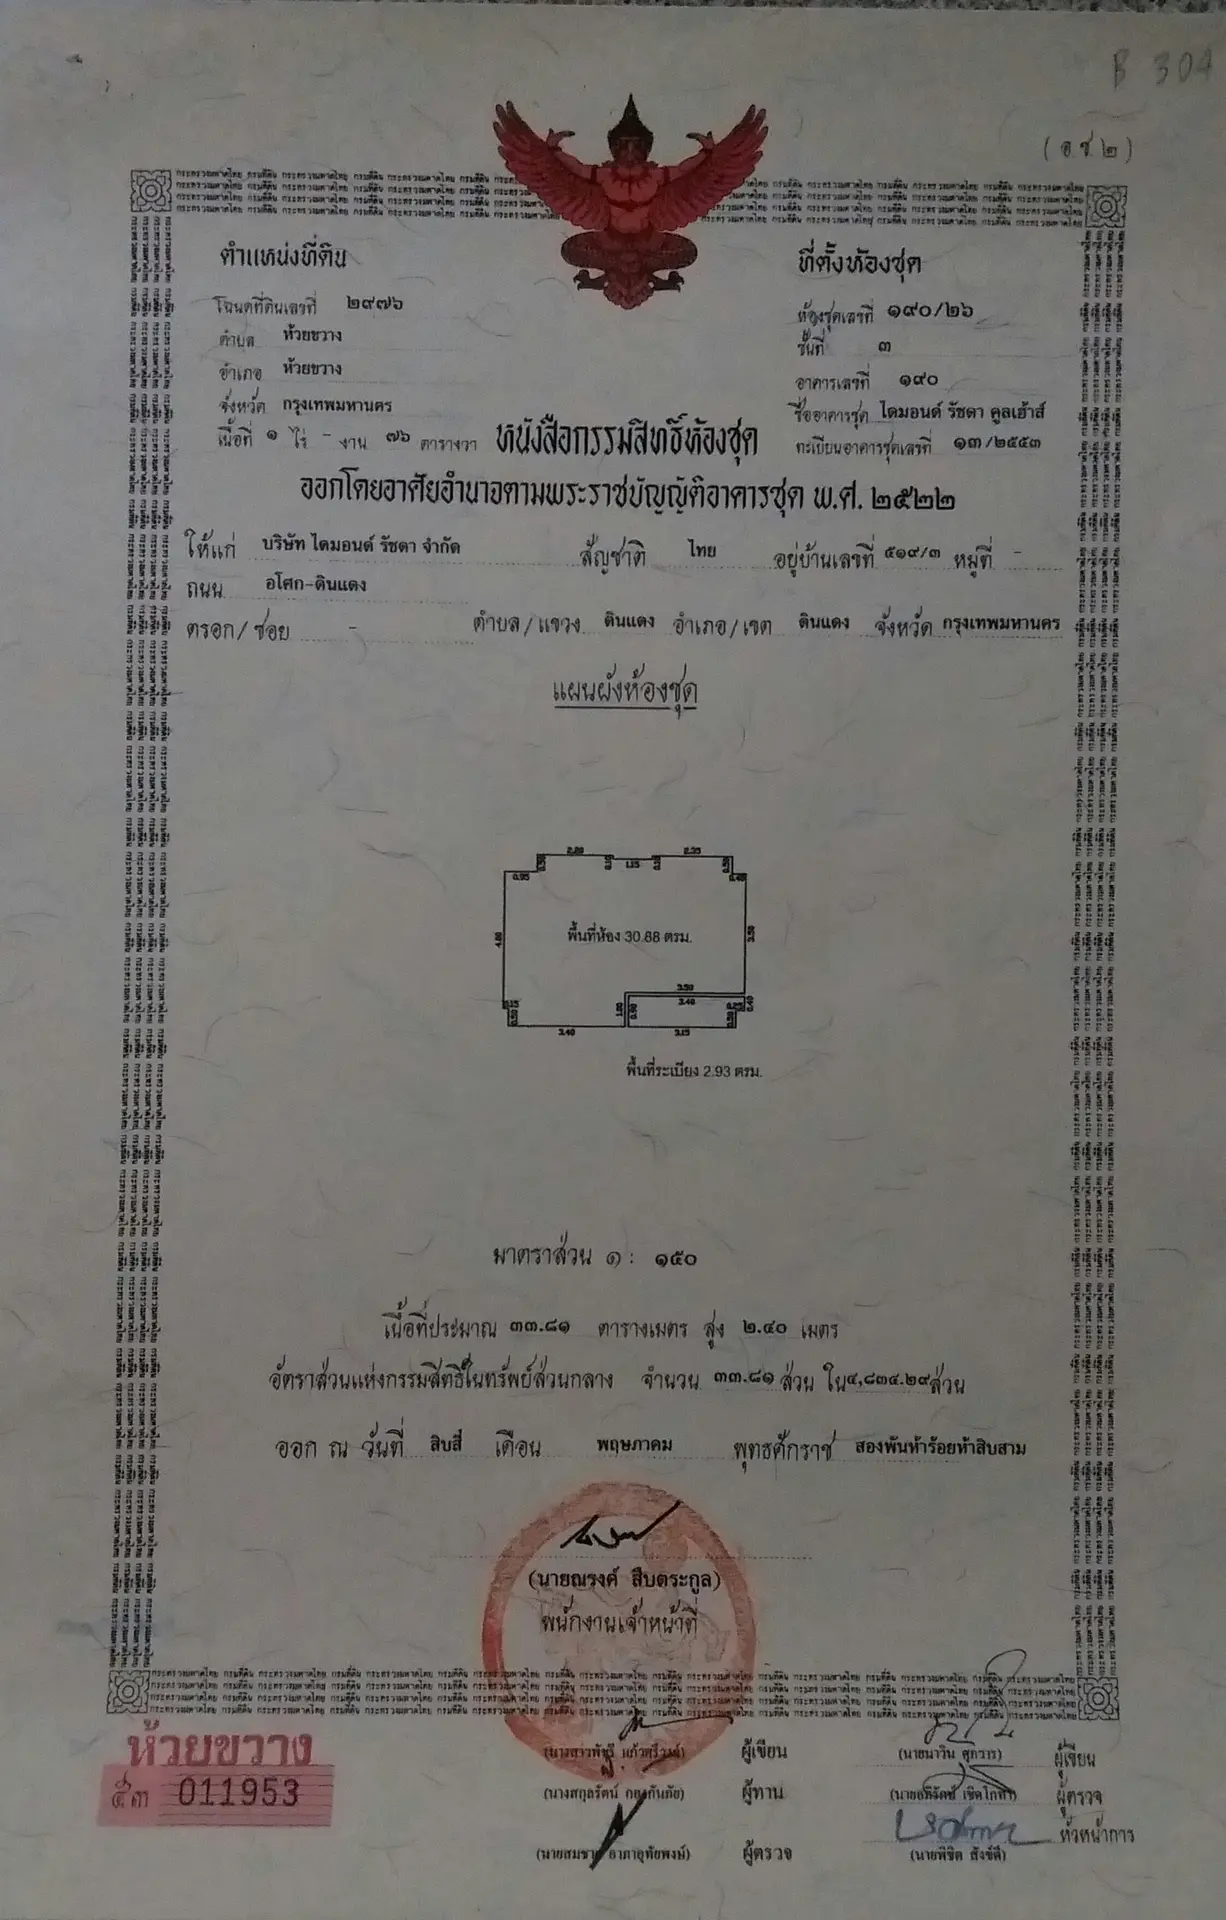 B 304
(อ.ช.๒)
ตำแหน่งที่ดิน
ที่ตั้งห้องชุด
โฉนดที่ดินเลขที่ ๒๙๗๖
ห้องชุดเลขที่ ๑๙๐/๒๖
ตำบล ห้วยขวาง
ชั้นที่ ๓
อำเภอ ห้วยขวาง
อาคารเลขที่ ๑๙๐
จังหวัด กรุงเทพมหานคร
ชื่ออาคารชุด ไดมอนด์ รัชดา คูลเฮ้าส์
เนื้อที่ ๑ ไร่ - งาน ๗๖ ตารางวา
ทะเบียนอาคารชุดเลขที่ ๑๓/๒๕๕๓
หนังสือกรรมสิทธิ์ห้องชุด
ออกโดยอาศัยอำนาจตามพระราชบัญญัติอาคารชุด พ.ศ. ๒๕๒๒
ให้แก่ บริษัท ไดมอนด์ รัชดา จำกัด สัญชาติ ไทย อยู่บ้านเลขที่ ๕๑๙/๓ หมู่ที่ -
ถนน อโศก-ดินแดง
ตรอก/ซอย - ตำบล/แขวง ดินแดง อำเภอ/เขต ดินแดง จังหวัด กรุงเทพมหานคร
แผนผังห้องชุด
2.35
0.95
1.15
4.00
พื้นที่ห้อง 30.88 ตรม.
3.50
3.50
3.40
3.40
3.15
พื้นที่ระเบียง 2.93 ตรม.
มาตราส่วน ๑ : ๑๕๐
เนื้อที่ประมาณ ๓๓.๘๑ ตารางเมตร สูง ๒.๔๐ เมตร
อัตราส่วนแห่งกรรมสิทธิ์ในทรัพย์ส่วนกลาง จำนวน ๓๓.๘๑ ส่วน ใน ๔,๘๓๔.๒๙ ส่วน
ออก ณ วันที่ สิบสี่ เดือน พฤษภาคม พุทธศักราช สองพันห้าร้อยห้าสิบสาม
(นายณรงค์ สืบตระกูล)
พนักงานเจ้าหน้าที่
กระทรวงมหาดไทย กรมที่ดิน
ผู้เขียน
(นายนาวิน
ผู้เขียน
(นางสกุลรัตน์
ผู้ทาน
ผู้ตรวจ
หัวหน้าการ
(นายสมชาย อาภาอุทัยพงษ์) ผู้ตรวจ
(นายพิชิต
ห้วยขวาง
011953